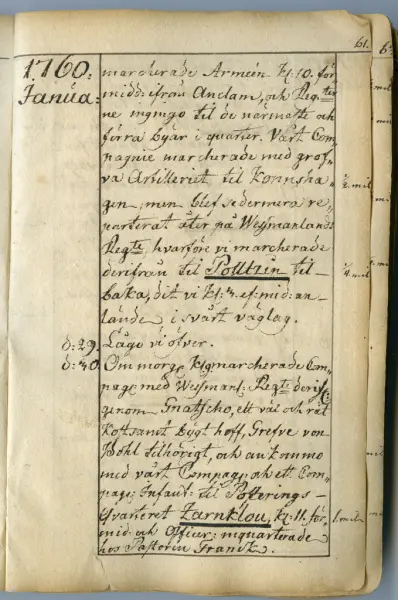 61.
1760. marcherade Armeén kl: 10. för,,
Janúa: midd: ifrån Anclam, och Reg:ter
ne ingingo til de närmaste och
förra byar i quarter. Vårt Com,,
pagnie marcherade med grof,,
va Artilleriet til Konnsha,,
gen, men blef sedermera re,,
parterat åter på Weÿmarlands
Reg:te, hvarföre vi marcherade
derifrån til Polltzin til-
baka, dit vi kl: 3. ef: mid: an-
lände i svårt väglag.
½ mil
¼ mil
d: 29. Låge vi öfver.
d: 30. Om morg: kl: 9 marcherade Com,,
pag: med Weÿmarl: Reg:te derif:
genom Gnatscho, ett väl och rät
kostsamt bÿgt hoff, Grefve von
Bohl tilhörigt, och ankommo
med vårt Compag: och ett Com,,
pag: Infant: til Potterings-
qvarteret Zarnklou, kl: 11. för,,
mid: och Officer: inquarterade
hos Pastorn Grantz.
1. mil